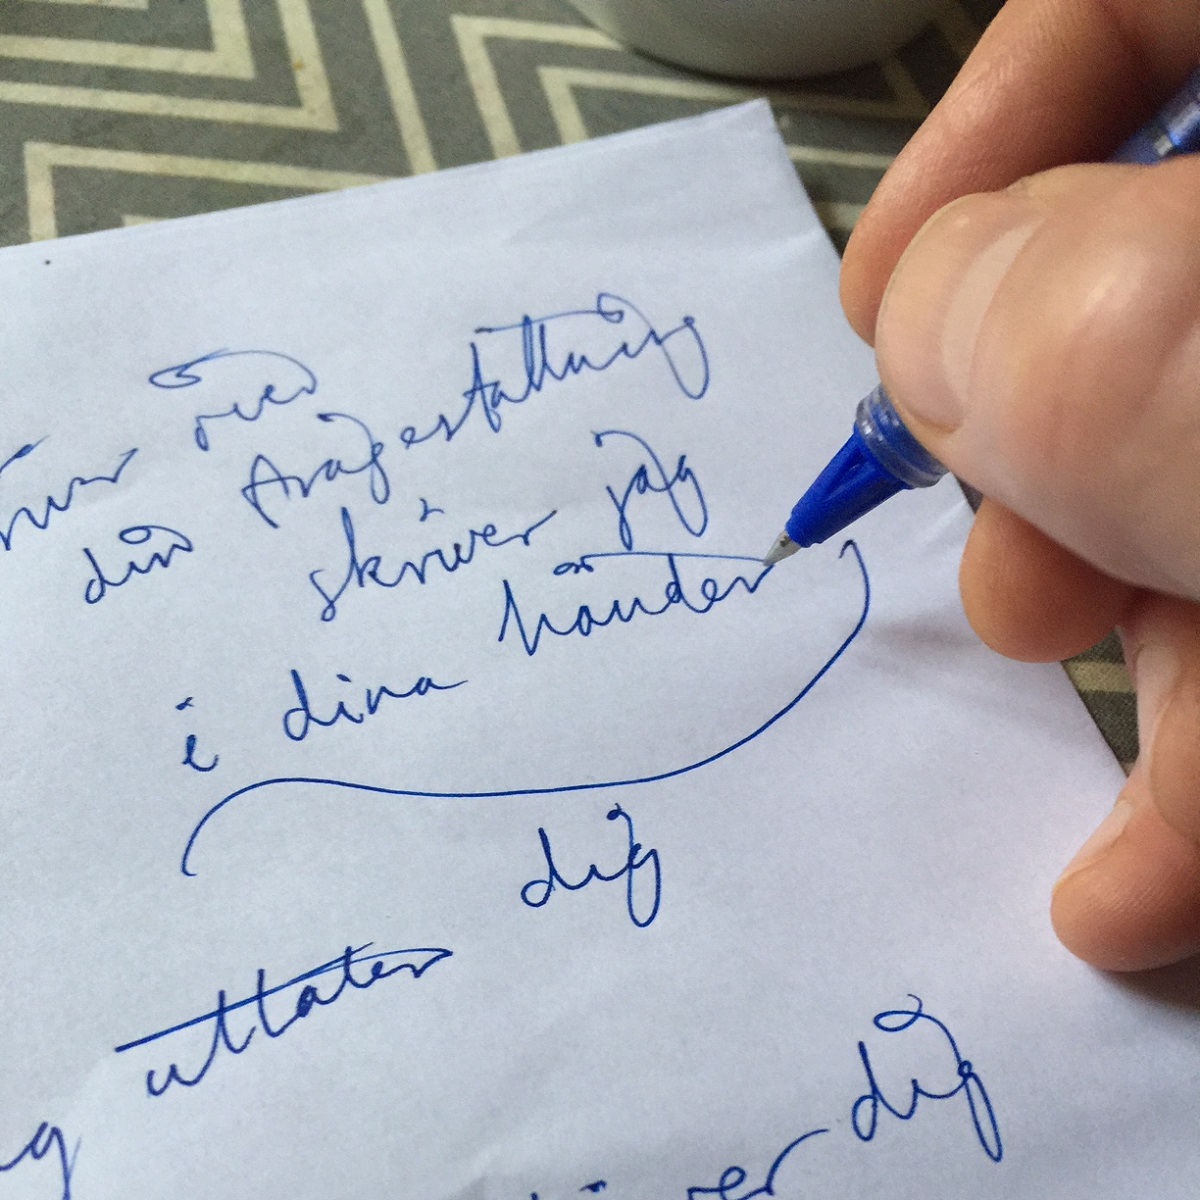 över
din frågeställning
skriver jag
i dina händer
dig
uttalar
dig